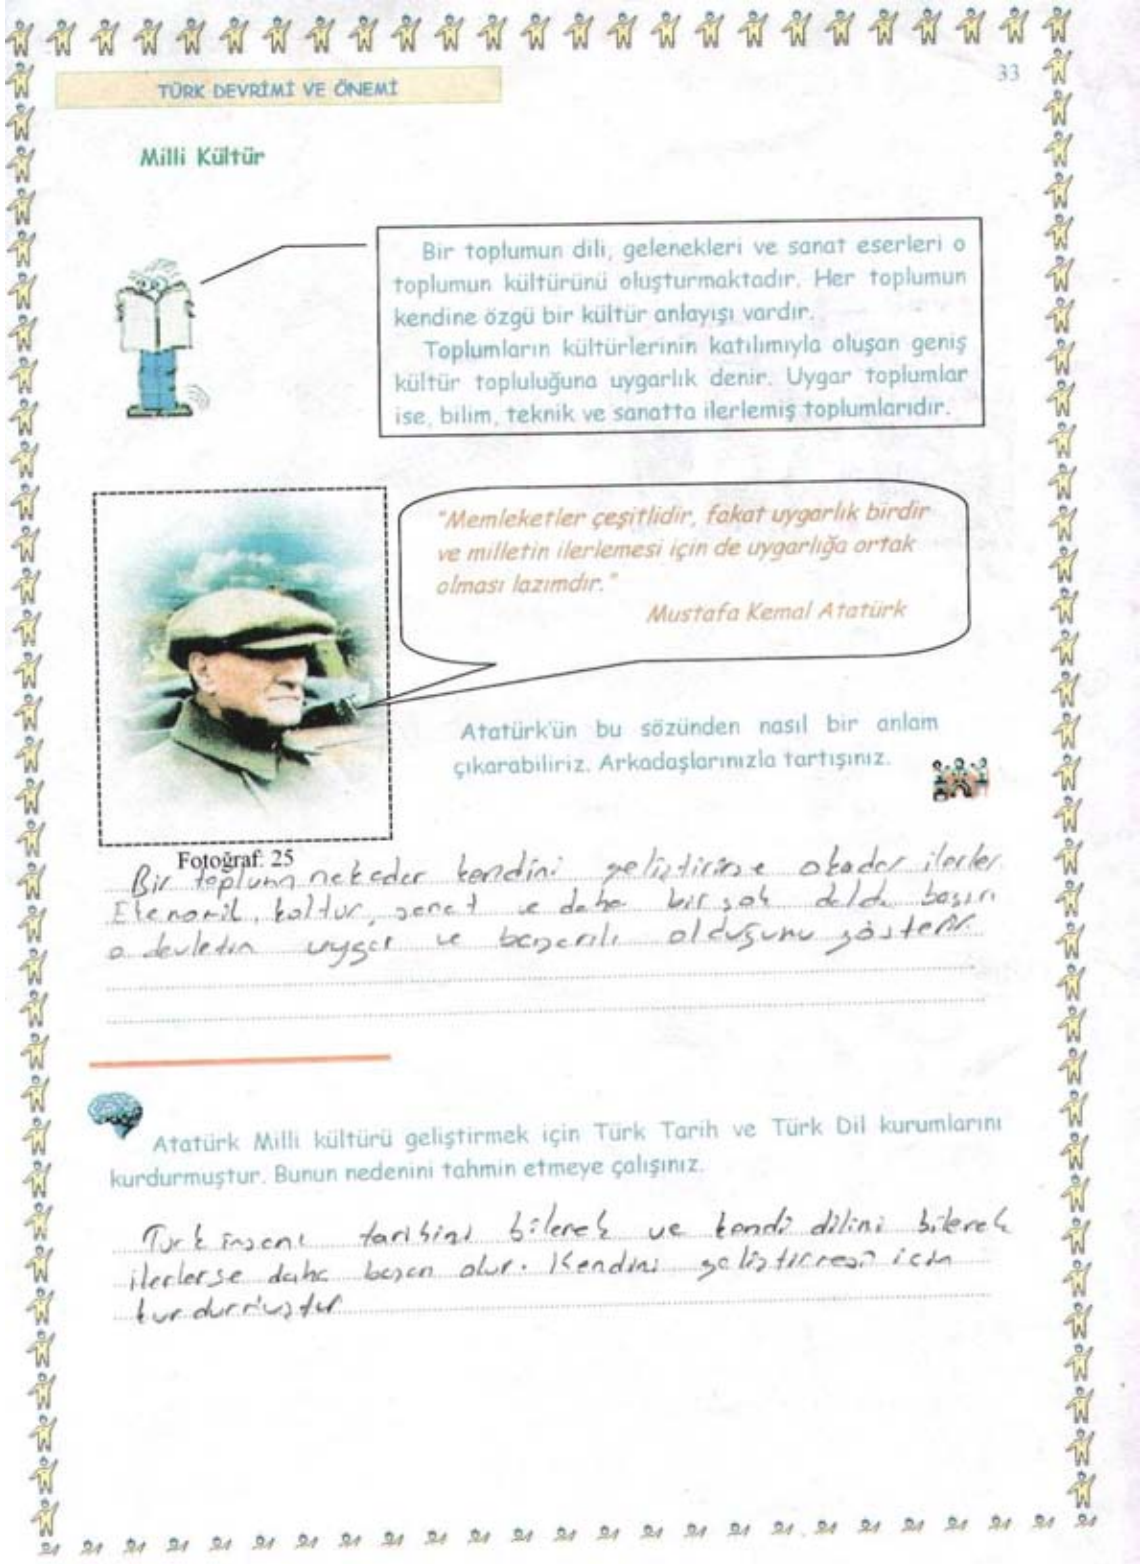 33
TÜRK DEVRİMİ VE ÖNEMİ
Milli Kültür
Bir toplumun dili, gelenekleri ve sanat eserleri o
toplumun kültürünü oluşturmaktadır. Her toplumun
kendine özgü bir kültür anlayışı vardır.
Toplumların kültürlerinin katılımıyla oluşan geniş
kültür topluluğuna uygarlık denir. Uygar toplumlar
ise, bilim, teknik ve sanatta ilerlemiş toplumlarıdır.
"Memleketler çeşitlidir, fakat uygarlık birdir
ve milletin ilerlemesi için de uygarlığa ortak
olması lazımdır."
Mustafa Kemal Atatürk
Atatürk'ün bu sözünden nasıl bir anlam
çıkarabiliriz. Arkadaşlarınızla tartışınız.
Fotoğraf: 25
Bir toplum nekadar kendini geliştirirse okadar ilerler.
Ekonomik, kültür, sanat ve daha birçok dalda başarı
o devletin uygar ve başarılı olduğunu gösterir.
Atatürk Milli kültürü geliştirmek için Türk Tarih ve Türk Dil kurumlarını
kurdurmuştur. Bunun nedenini tahmin etmeye çalışınız.
Türk insanı tarihini bilerek ve kendi dilini bilerek
ilerlerse daha olur. Kendini geliştirmesi için
kurdurmuştur